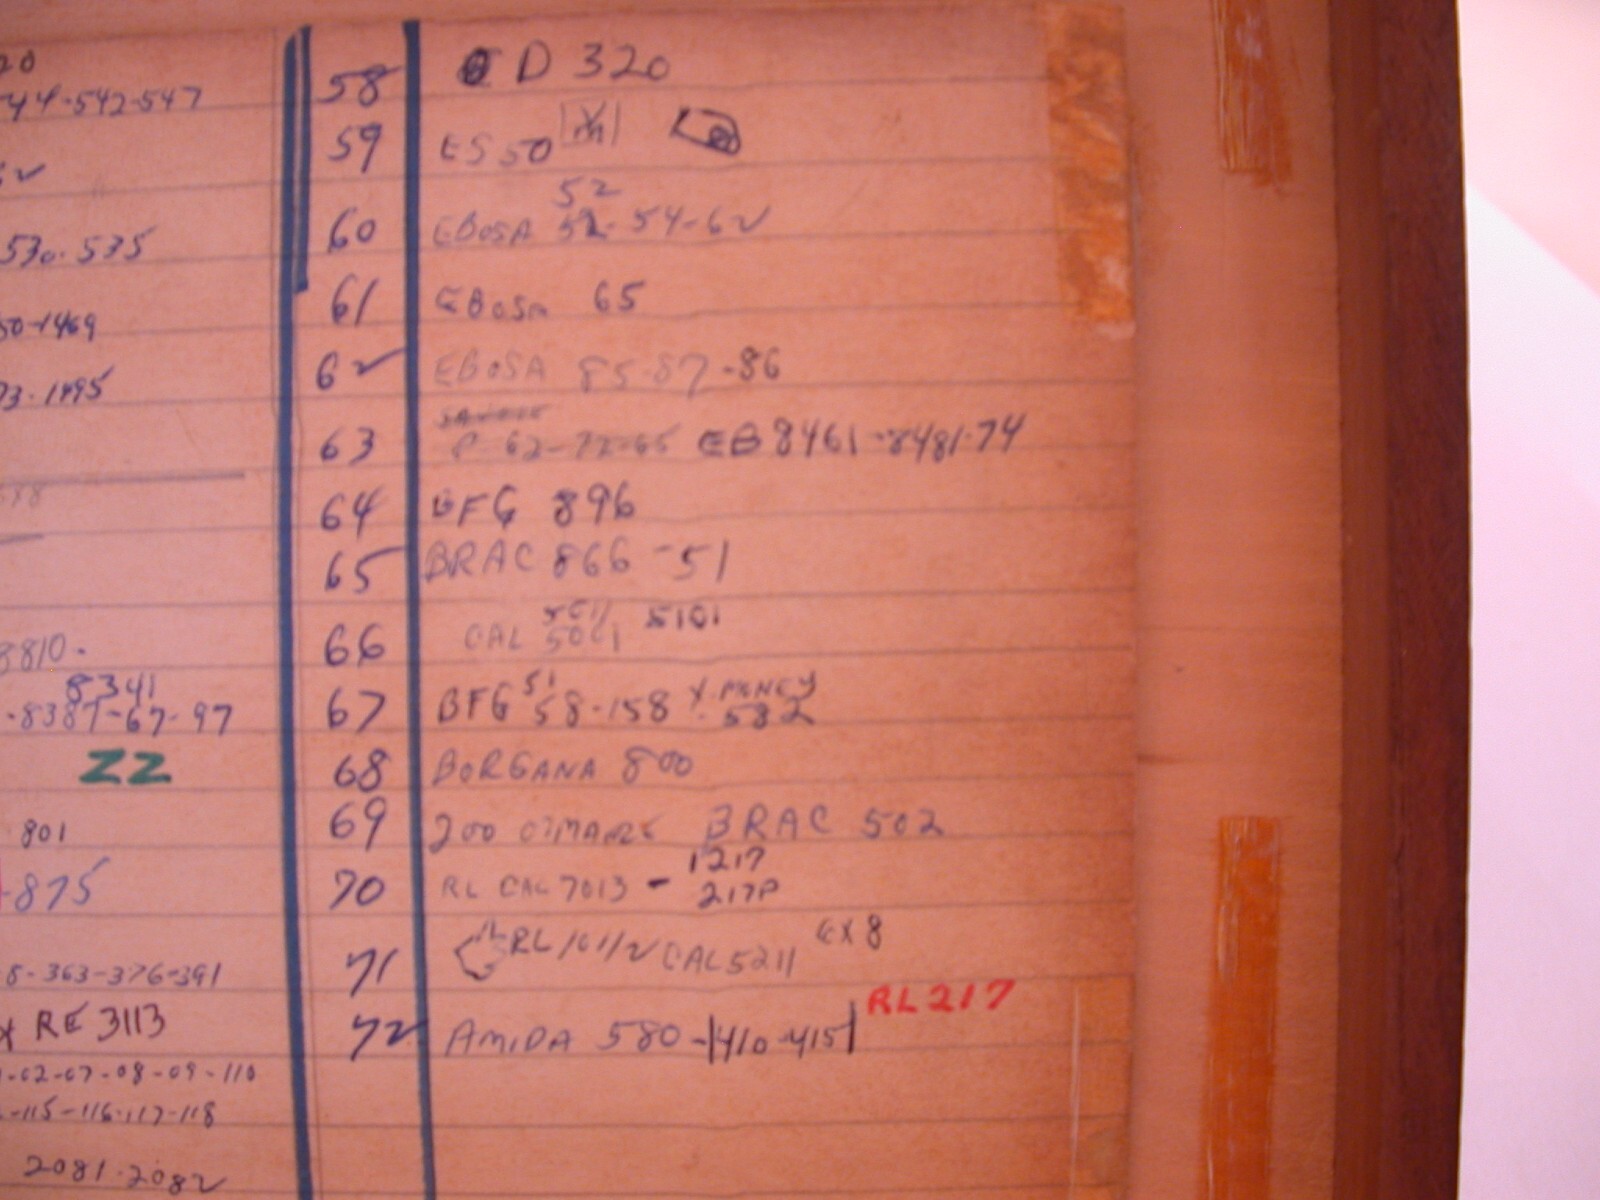 20
544-542-547
62
530-535
50-1469
73-1495
8810.
8341
-8387-67-97
ZZ
801
-875
8-363-376-391
X RE 3113
-02-07-08-09-110
-115-116-117-118
2081-2082
58 D 320
59 ES 50
52
60 EBOSA 52-54-62
61 EBOSA 65
62 EBOSA 85-87-86
63 P 62-72-65 EB 8461-8481-74
64 BFG 896
65 BRAC 866-51
5101
66 CAL 5001
51 X MONEY
67 BFG 58-158 582
68 BORGANA 800
69 200 BRAC 502
1217
70 RL CAL 7013 - 217P
71 RL CAL 5211 EX 8
RL 217
72 AMIDA 580-|410-415|